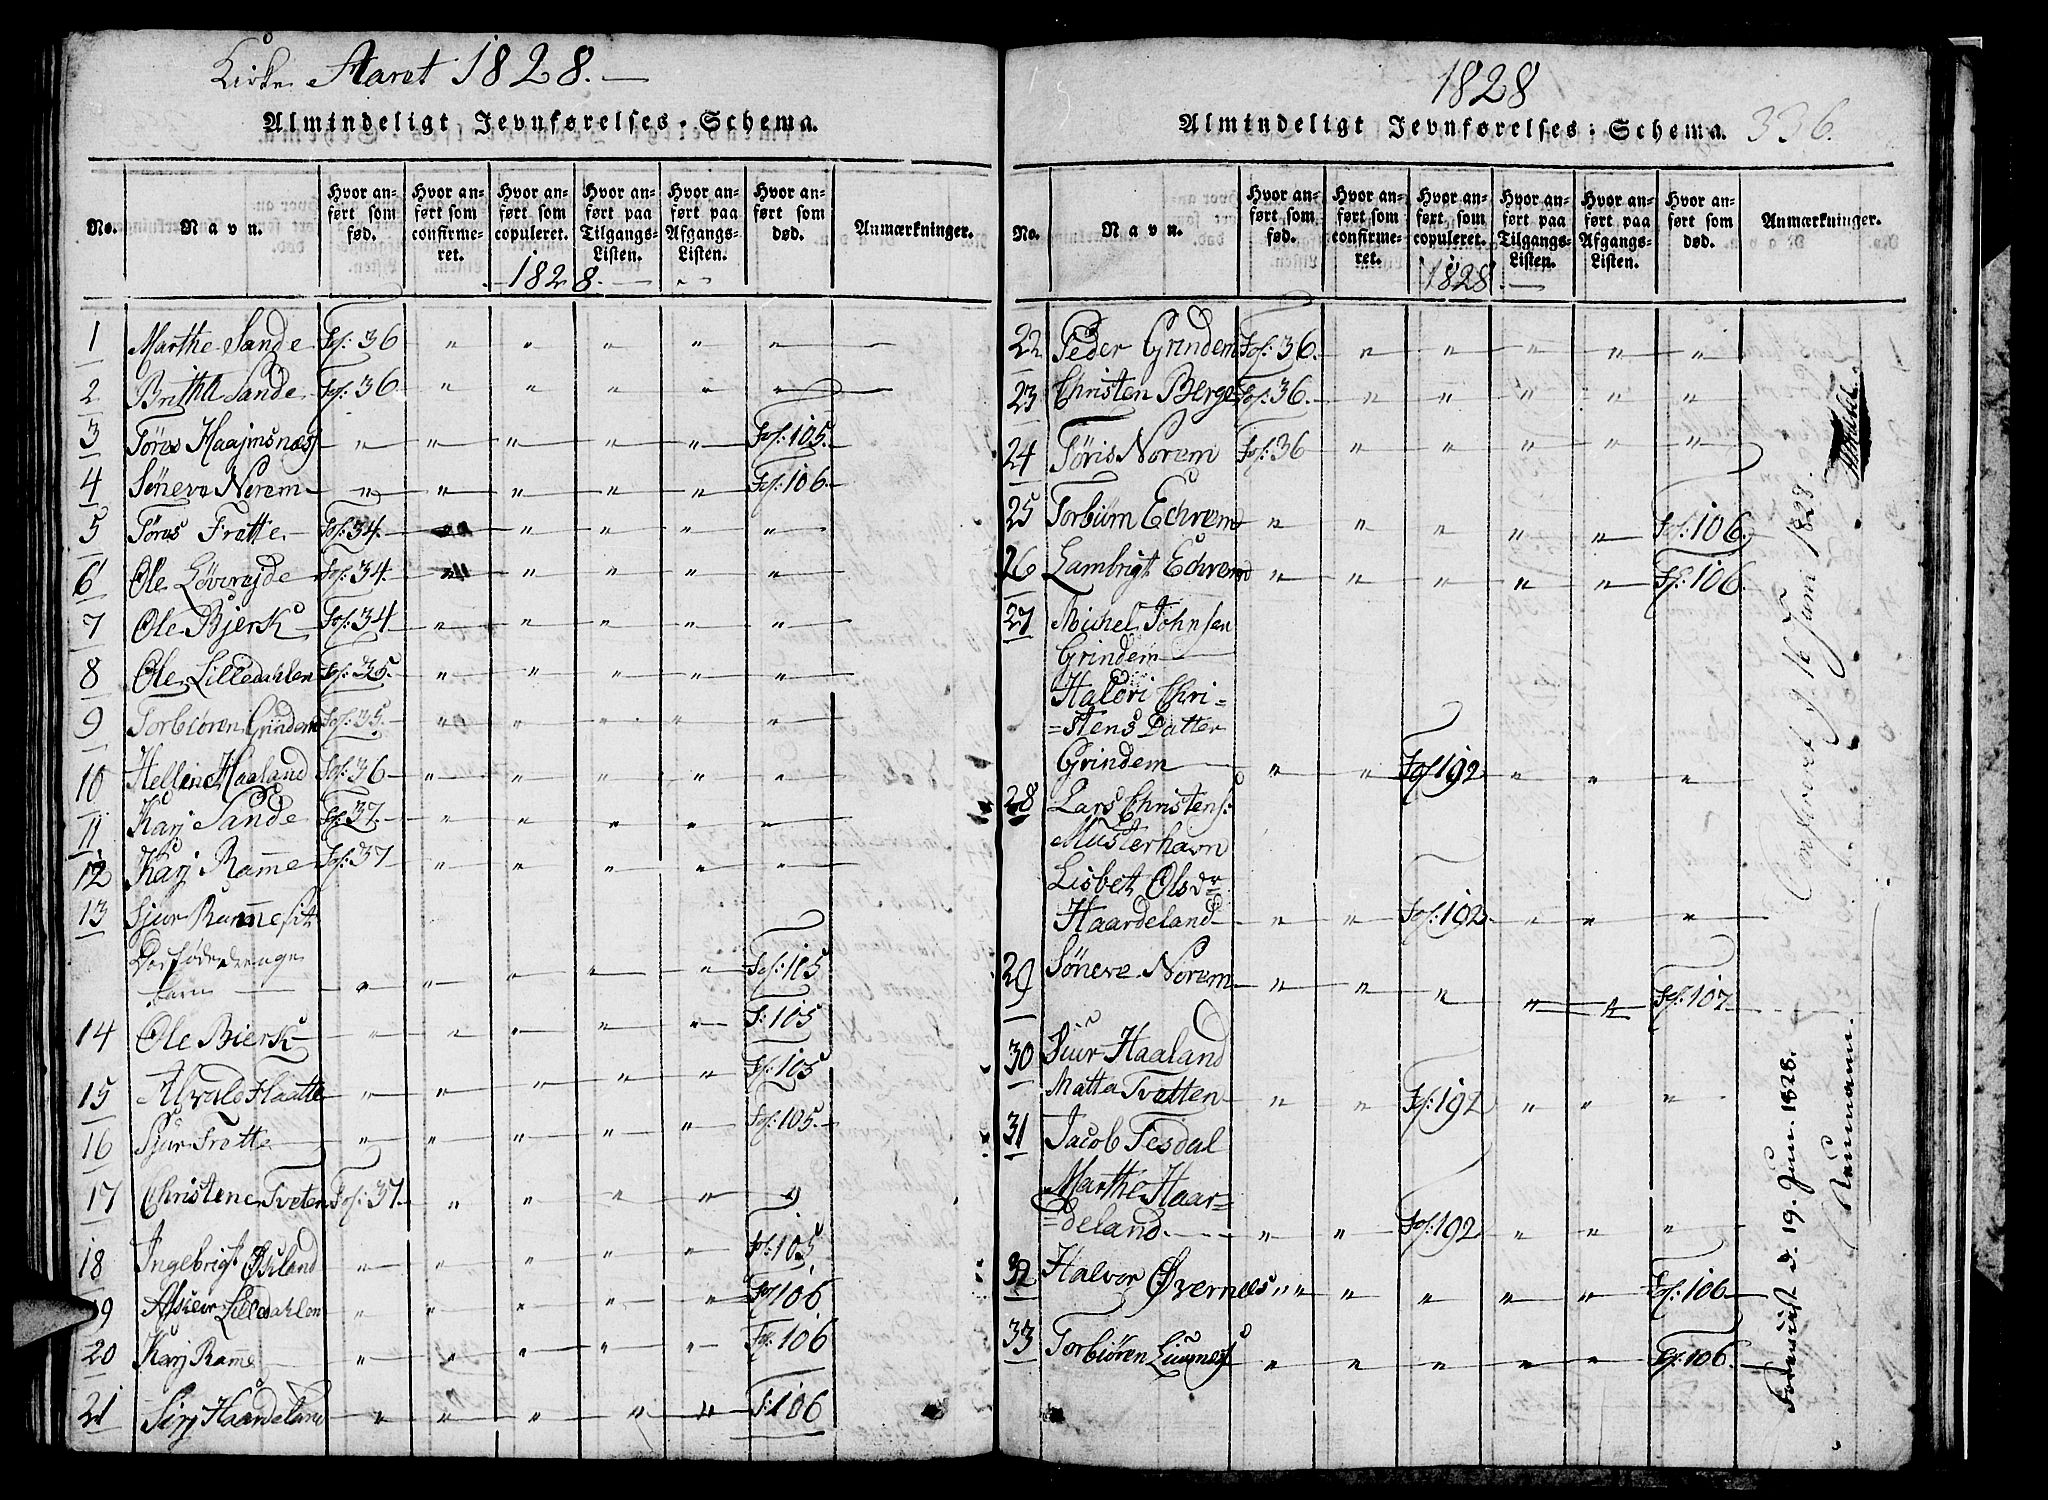 Kirke Aaret 1828. —
Almindeligt Jevnførelses-Schema.
No. Navn. Hvor anført som fød. Hvor anført som confirmeret. Hvor anført som copuleret. Hvor anført paa Tilgangs-Listen. Hvor anført paa Afgangs-Listen. Hvor anført som død. Anmærkninger.
1828. —
1 Marthe Sande Fol: 36 " " " " "
2 Britha Sande Fol: 36 " " " " "
3 Töres Haajmsnæs " " " " " Fol: 105.
4 Söneve Norem " " " " " Fol: 106.
5 Töres Fratte Fol: 34. " " " " "
6 Ole Löverejde Fol: 34. " " " " "
7 Ole Bjerk Fol: 34 " " " " "
8 Ole Lilledahlen Fol: 35. " " " " "
9 Torbiören Grindem Fol: 35. " " " " "
10 Helline Haaland Fol: 36 " " " " "
11 Karj Sande Fol: 37. " " " " "
12 Karj Rame Fol: 37 " " " " "
13 Sjur Rame sit
Dødfødte drenge
barn " " " " " Fol: 105
14 Ole Bierk " " " " " F: 105
15 Alvald Flaatte " " " " " Fol: 105
16 Sjur Fratte " " " " " Fol: 105.
17 Christene Tveten Fol: 37. " " " " "
18 Ingebrigt Øsland " " " " " Fol: 105
19 Asseur Lilledahlen " " " " " Fol 106
20 Karj Rame " " " " " Fol. 106
21 Sirj Haardeland " " " " " F: 106
1828
Almindeligt Jevnførelses-Schema. 336.
No. Navn. Hvor anført som fød. Hvor anført som confirmeret. Hvor anført som copuleret. Hvor anført paa Tilgangs-Listen. Hvor anført paa Afgangs-Listen. Hvor anført som død. Anmærkninger.
1828. —
22 Peder Grindem Fol: 36. " " " " "
23 Christen Berge Fol: 36. " " " " "
24 Töris Norem Fol: 36 " " " " "
25 Torbiörn Echrem " " " " " Fol: 106.
26 Lambrigt Echrem " " " " " Fol: 106.
27 Michel Johnsen
Grindem
Halöri Chri=
=stens Datter
Grindem " " Fol 192 " " "
28 Lars Christens:
Musterhavn
Lisbet Olsdr
Haardeland " " Fol: 192. " " "
29 Söneve Norem " " " " " Fol: 107.
30 Siur Haaland
Matta Tvetten " " Fol: 192 " " "
31 Jacob Tesdal
Marthe Haar=
=deland. " " Fol: 192 " " "
32 Halvor Øvernees " " " " " Fol: 106
33 Torbiören Liumes " " " " " Fol: 106.
Confereret d 16 Juni 1828.
Foreviist d. 19. Jun. 1828.